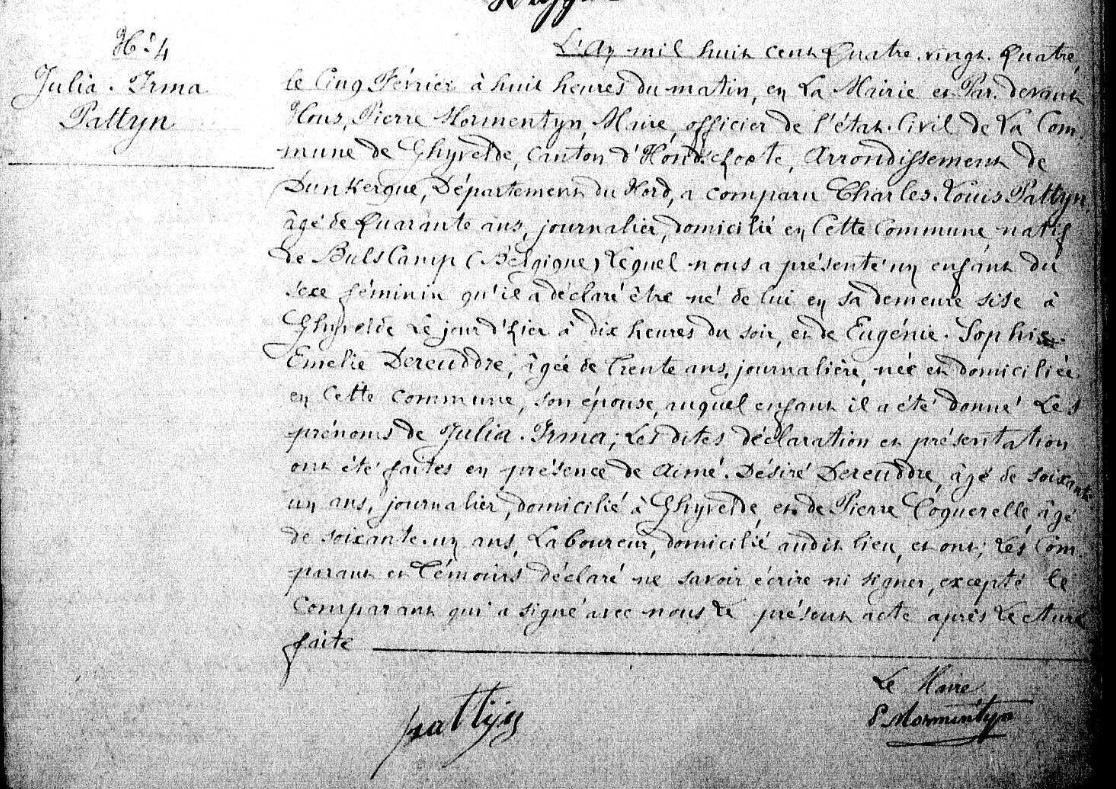 N° 4
Julia. Irma
Pattyn
L'An mil huit cent Quatre. vingt. Quatre,
le Cinq Février à huit heures du matin, en La Mairie et Par. devant
Nous, Pierre Mormentyn, Maire, officier de l'état. Civil de La Com-
mune de Ghyvelde, Canton d'Hondschoote, Arrondissement de
Dunkerque, Département du Nord, a comparu Charles. Louis Pattyn,
âgé de Quarante ans, journalier, domicilié en Cette Commune, natif
de BulsCamp (Belgique) Lequel nous a présenté un enfant du
sexe féminin qu'il a déclaré être né de lui en sa demeure sise à
Ghyvelde Le jour d'hier à dix heures du soir, et de Eugénie. Sophie
Emelie Dereuddre, âgée de Trente ans, journalière, née et domiciliée
en Cette Commune, son épouse, auquel enfant il a été donné Les
prénoms de Julia. Irma; Les dites déclaration et présentation
ont été faites en présence de Aimé. Désiré Dereuddre, âgé de soixante
un ans, journalier, domicilié à Ghyvelde, et de Pierre Coquerelle, âgé
de soixante. un ans, Laboureur, domicilié audit lieu, et ont; Les Com-
parant et Témoins déclaré ne savoir écrire ni signer, excepté le
Comparant qui a signé avec nous Le présent acte après Lecture
faite
Le Maire
pattijn
P. Mormentyn